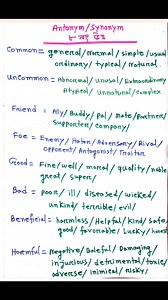 Antonym/Synonym
Common = general/normal/simple/usual
ordinary/typical/natural.
Uncommon = Abnormal/Unusual/Extraordinary
Atypical/unnatural/complex
Friend = Ally/Buddy/Pal/mate/Partner/
Supporter/Company/
Foe = Enemy/Hater/Adversary/Rival/
Opponent/Antagonist/Traitor
Good = Fine/well/moral/quality/noble
great/super/
Bad = poor/ill/diseased/wicked/
unkind/terrible/evil/
Beneficial = harmless/Helpful/kind/safe/
good/favorable/Lucky/
Harmful = Negative/Baleful/Damaging/
injurious/detrimental/toxic/
adverse/inimical/risky